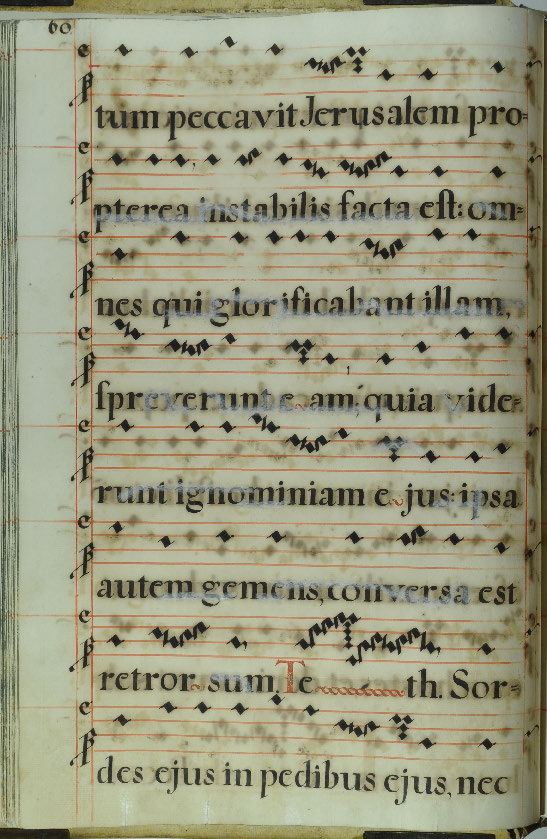 60
tum peccavit Jerusalem pro=
pterea instabilis facta eſt: om=
nes qui glorificabant illam,
ſpreverunt e am: quia vide=
runt ignominiam e jus: ipsa
autem gemens, conversa est
retror sum. Te th. Sor=
des ejus in pedibus ejus, nec